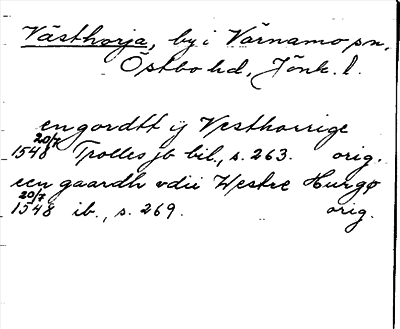 Västhorja, by i Värnamo sn,
Östbo hd, Jönk. l.
en gordtt ij Vesthorrige
20/7 1548 Trolles jb bil., s. 263. orig.
een gaardh vdii Westre Hurgø
20/7 1548 ib., s. 269. orig.